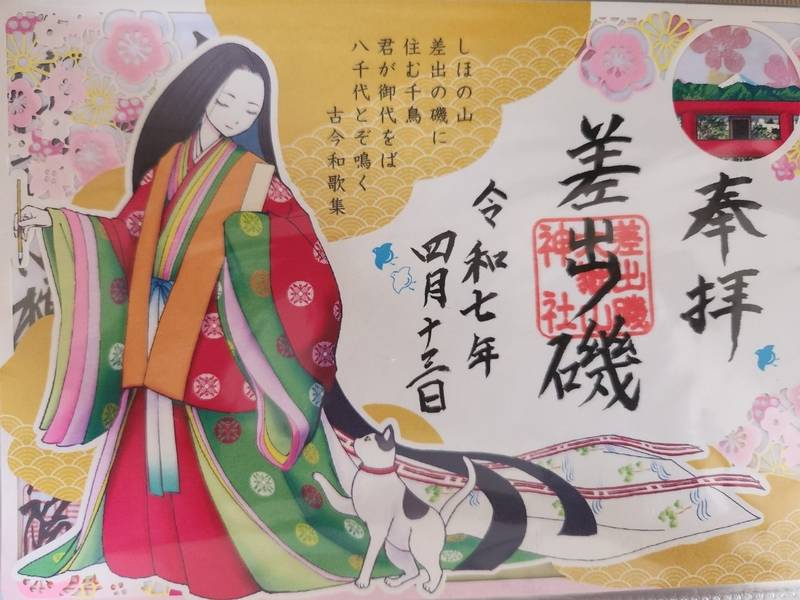 奉拝
差出ノ磯
差出磯
山
神社
令和七年
四月十三日
しほの山
差出の磯に
住む千鳥
君が御代をば
八千代とぞ鳴く
古今和歌集